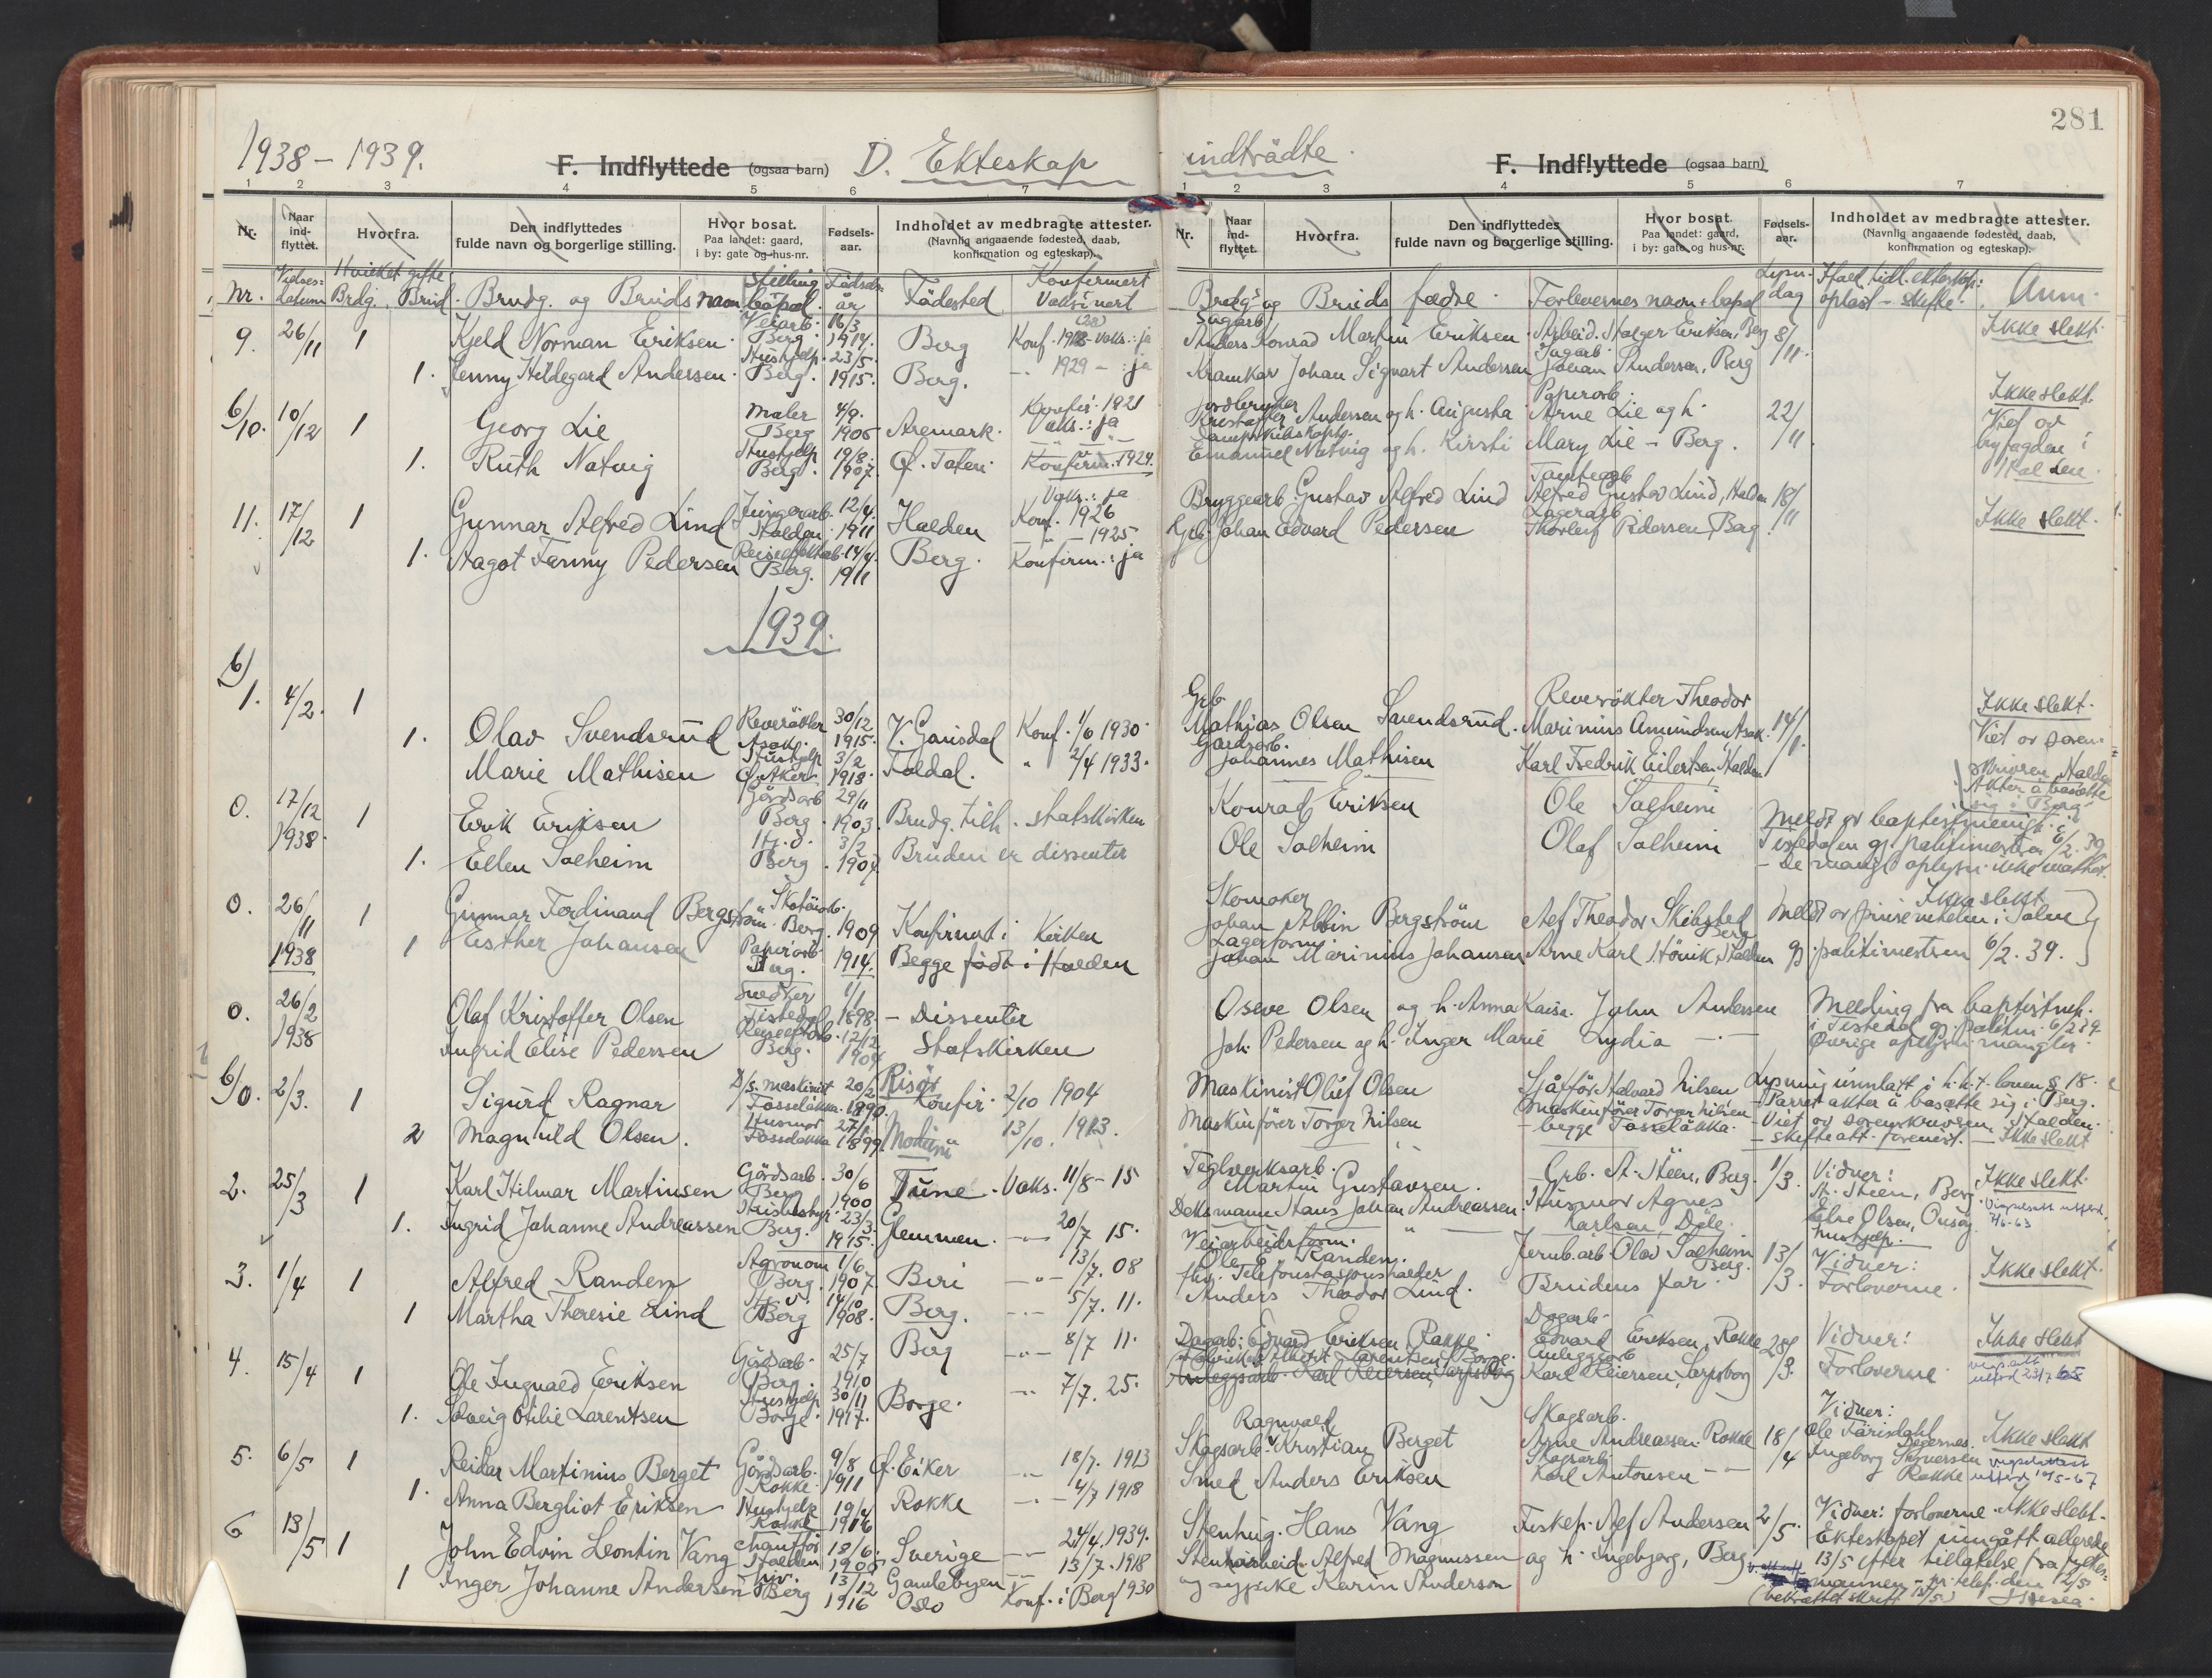 281
1938 – 1939.
F. Indflyttede (ogsaa barn)
D. Ekteskap
indtrådte.
F. Indflyttede (ogsaa barn)
1 2 3 4 5 6 7
1 2 3 4 5 6 7
Nr.
Naar ind- flyttet.
Hvorfra.
Den indflyttedes fulde navn og borgerlige stilling.
Hvor bosat. Paa landet: gaard, i by: gate og hus-nr.
Fødsels- aar.
Indholdet av medbragte attester. (Navnlig angaaende fødested, daab, konfirmation og egteskap).
Nr.
Naar ind- flyttet.
Hvorfra.
Den indflyttedes fulde navn og borgerlige stilling.
Hvor bosat. Paa landet: gaard, i by: gate og hus-nr.
Fødsels- aar.
Indholdet av medbragte attester. (Navnlig angaaende fødested, daab, konfirmation og egteskap).
Nr. Vielses- datum Hvilket gifte Brdg. Brud. Brudg. og Bruds navn Stilling bopæl. Fødsels- år Fødested Konfirmert Vaksinert
Brudg's og Bruds fædre. Forlovernes navn + bopæl Lysn. dag Anm.
9. 26/11 1 Kjeld Norman Eriksen. Veiarb. Berg. 16/3 1914. Berg Konf. 1928 - Vaks.: ja
Anders Konrad Martin Eriksen Arbeid. Holger Eriksen, Berg 8/11. Ikke slekt.
1. Jenny Hildegard Andersen. Hushjelp Berg. 23/5. 1915. Berg. 1929 - : ja
Kramkar Johan Sigvart Andersen Johan Andersen, Berg
6/10. 10/12 1 Georg Lie Maler Berg 4/9. 1906 Aremark. Konfir. 1921 Vaks.: ja
Jordbruker Kristoffer Andersen og h. Augusta Papirarb. Arne Lie og h. 22/11 Ikke slekt. Viet av byfogden i Halden.
1. Ruth Natvig Hushjelp Berg. 19/8. 1907. Konfirm. 1924.
Emanuel Natvig og h. Kirsti Mary Lie - Berg.
11. 17/12 1 Gunnar Alfred Lind Halden 12/4. 1911 Halden Vaks.: ja Konf. 1926
Bryggearb. Gustav Alfred Lind Alfred Gustav Lind, Halden 18/11 Ikke slekt.
1. Aagot Fanny Pedersen Berg. 14/4. 1911 Berg. - " - 1925 Konfirm.: ja
Johan Edvard Pedersen Lagerarb. Thorleif Pedersen, Berg
1939.
6/
1. 4/2. 1 Olav Svendsrud Reverøkter Asak. 30/12 1915. V. Gausdal Konf. 1/6 1930.
Grb. Mathias Olsen Svendsrud. Reverøkter Theodor Marinius Amundsen Asak. 14/1. Ikke slekt. Viet av soren- skriveren, Halden Akter å bosætte sig i Berg
1. Marie Mathisen Hushjelp Ø. Aker. 3/2 1918. Foldal. " 2/4 1933.
Gårdsarb. Johannes Mathisen Karl Fredrik Eilertsen, Halden
0. 17/12 1938. 1 Erik Eriksen Gårdsarb Berg 29/11 1903. Brudg. tilh. statskirken
Konrad Eriksen Ole Solheim Meldt av baptistmenigh. i
1. Ellen Solheim Hj. d. Berg. 3/2 1907. Bruden er dissenter
Ole Solheim Olaf Solheim Tistedalen gj. politimestren 6/2. 39 - De mangl. oplysn. ikke mottat.
0. 26/11 1938 1 Gunnar Ferdinand Bergstrøm. Skotøiarb. Berg. 1909 Konfirmert i Kirken
Skomaker Johan Albin Bergström Alf Theodor Skibsted Berg Ikke slekt Meldt av
1 Esther Johansen Papirarb. Berg. 1914. Begge født i Halden
Lagerform. Johan Marinius Johansen Arne Karl Halden gj. politimestren 6/2. 39.
0. 26/2 1938 Olaf Kristoffer Olsen Snedker Tistedal 1/1 1898 - Dissenter
Oseve Olsen og h. Anna Kaisa. John Andersen Melding fra baptistmh.
Ingrid Elise Pedersen Berg. 12/12 1904 Statskirken
Joh. Pedersen og h. Inger Marie Lydia - " - i Tistedal gj. politim. 6/2 39. Øvrige oplysn. mangler.
6/0. 2/3. 1 Sigurd Ragnar D/s. maskinist Fosseløkka. 20/2 1890. Risør Konfir. 2/10 1904
Maskinist Oluf Olsen Sjåffør Halvard Nilsen Lysning unnlatt i h.h.t. loven § 18. - Parret akter å bosætte sig i Berg.
2 Magnhild Olsen. Husmor Fosseløkka 27/ 1899 Modum " 13/10. 1913.
Maskinfører Torger Nilsen Maskinfører Torger Nilsen - begge Fosseløkka. - Viet av sorenskriveren, Halden. - skifteatt. forevist. - Ikke slekt
2. 25/3 1 Karl Hilmar Martinsen Gårdsarb. Berg 30/6 1900 Tune. Vaks. 11/8 - 15
Teglverksarb. Martin Gustavsen. Grb. St. Steen, Berg. 1/3. Vidner: St. Steen, Berg Ikke slekt.
1. Ingrid Johanne Andreassen Berg. 23/3 1915. Glemmen. - " - 20/7 15.
Deksmann Hans Johan Andreassen. Husmor Agnes Karlsen, Dele. Else Olsen, Onsøy hushjelp.
3. 1/4 1 Alfred Randen Agronom Berg. 1/6. 1907. Biri - " - 13/7. 08
Veiarbeidsform. Ole Randen. Jernb.arb. Olav Solheim Berg. 13/3. Vidner: Ikke slekt.
1 Martha Theresie Lind Berg 14/10 1908. Berg. - " - 5/7. 11.
fhv. Telefonstasjonsholder Anders Theodor Lind. Brudens far. Forloverne.
4. 15/4 1 Ole Ingvald Eriksen Gårdsarb. Berg. 25/7 1910 Berg - " - 8/7 11.
Dagarb. Edvard Eriksen Rokke. Dagarb. Edvard Eriksen, Rokke 28/3. Vidner: Ikke slekt
1. Solveig Otilie Larentsen Hushjelp Borge. 30/11 1917. Borge. - " - 7/7. 25.
Anleggsarb. Karl Reiersen, Sarpsborg Anleggsarb Karl Reiersen, Sarpsborg Forloverne. utferd 23/7 65
5. 6/5 1 Reidar Martinius Berget Gårdsarb. Rokke 9/8 1911 Ø. Eiker - " - 18/7. 1913
Skogsarb. Ragnvald Kristian Berget Skogsarb. Arne Andreassen Rokke 18/4 Vidner: Ole Degernes. Ikke slekt
1. Anna Bergliot Eriksen Hushjelp Rokke 19/4 1916 Rokke - " - 4/7 1918
Smed Anders Eriksen Skogsarb. Karl Antonsen - " - Ingeborg Rokke 10/5-67
6 13/5 1 John Edvin Leontin Vang Chauffør Halden 18/6. 1905 Sverige - " - 24/4. 1939.
Stenhug. Hans Vang Alf Andersen 2/5. Vidner: forloverne. Ikke slekt. Ekteskapet inngått allerede
1 Inger Johanne Andersen Berg 13/12 1916 Gamlebyen Oslo 13/7. 1918 Konf. i Berg 1930
Stenarbeid. Alfred Magnussen og h. Ingebjørg, Berg. 13/5 efter tillatelse fra fylkes-
og sypike Karin Anderson mannen - pr. telef. den 12/5
(bekræftet skrift. 13/5)